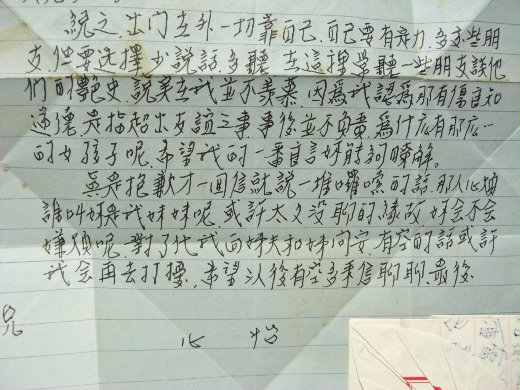 總之，出门在外一切靠自己，自己要有定力，多交些朋
友但要选擇少說話多聽，在這裡常聽一些朋友談他
們的艷史，說实在我並不羨慕，因為我認為那有傷自
這種走指超出友誼之事事後並不負責，為什庅有那庅一
的女孩子呢，希望我的一番自言妳能夠瞭解。
真是抱歉才一回信就說一堆囉嗦的話，那人
誰叫妳是我妹妹呢，或許太久没聊的緣故，妳会不会
嫌煩呢，對了代我向姊夫和姊问安，有空的話或許
我会再去打擾，希望以後有空多來信聊聊，最後
兄
心怡